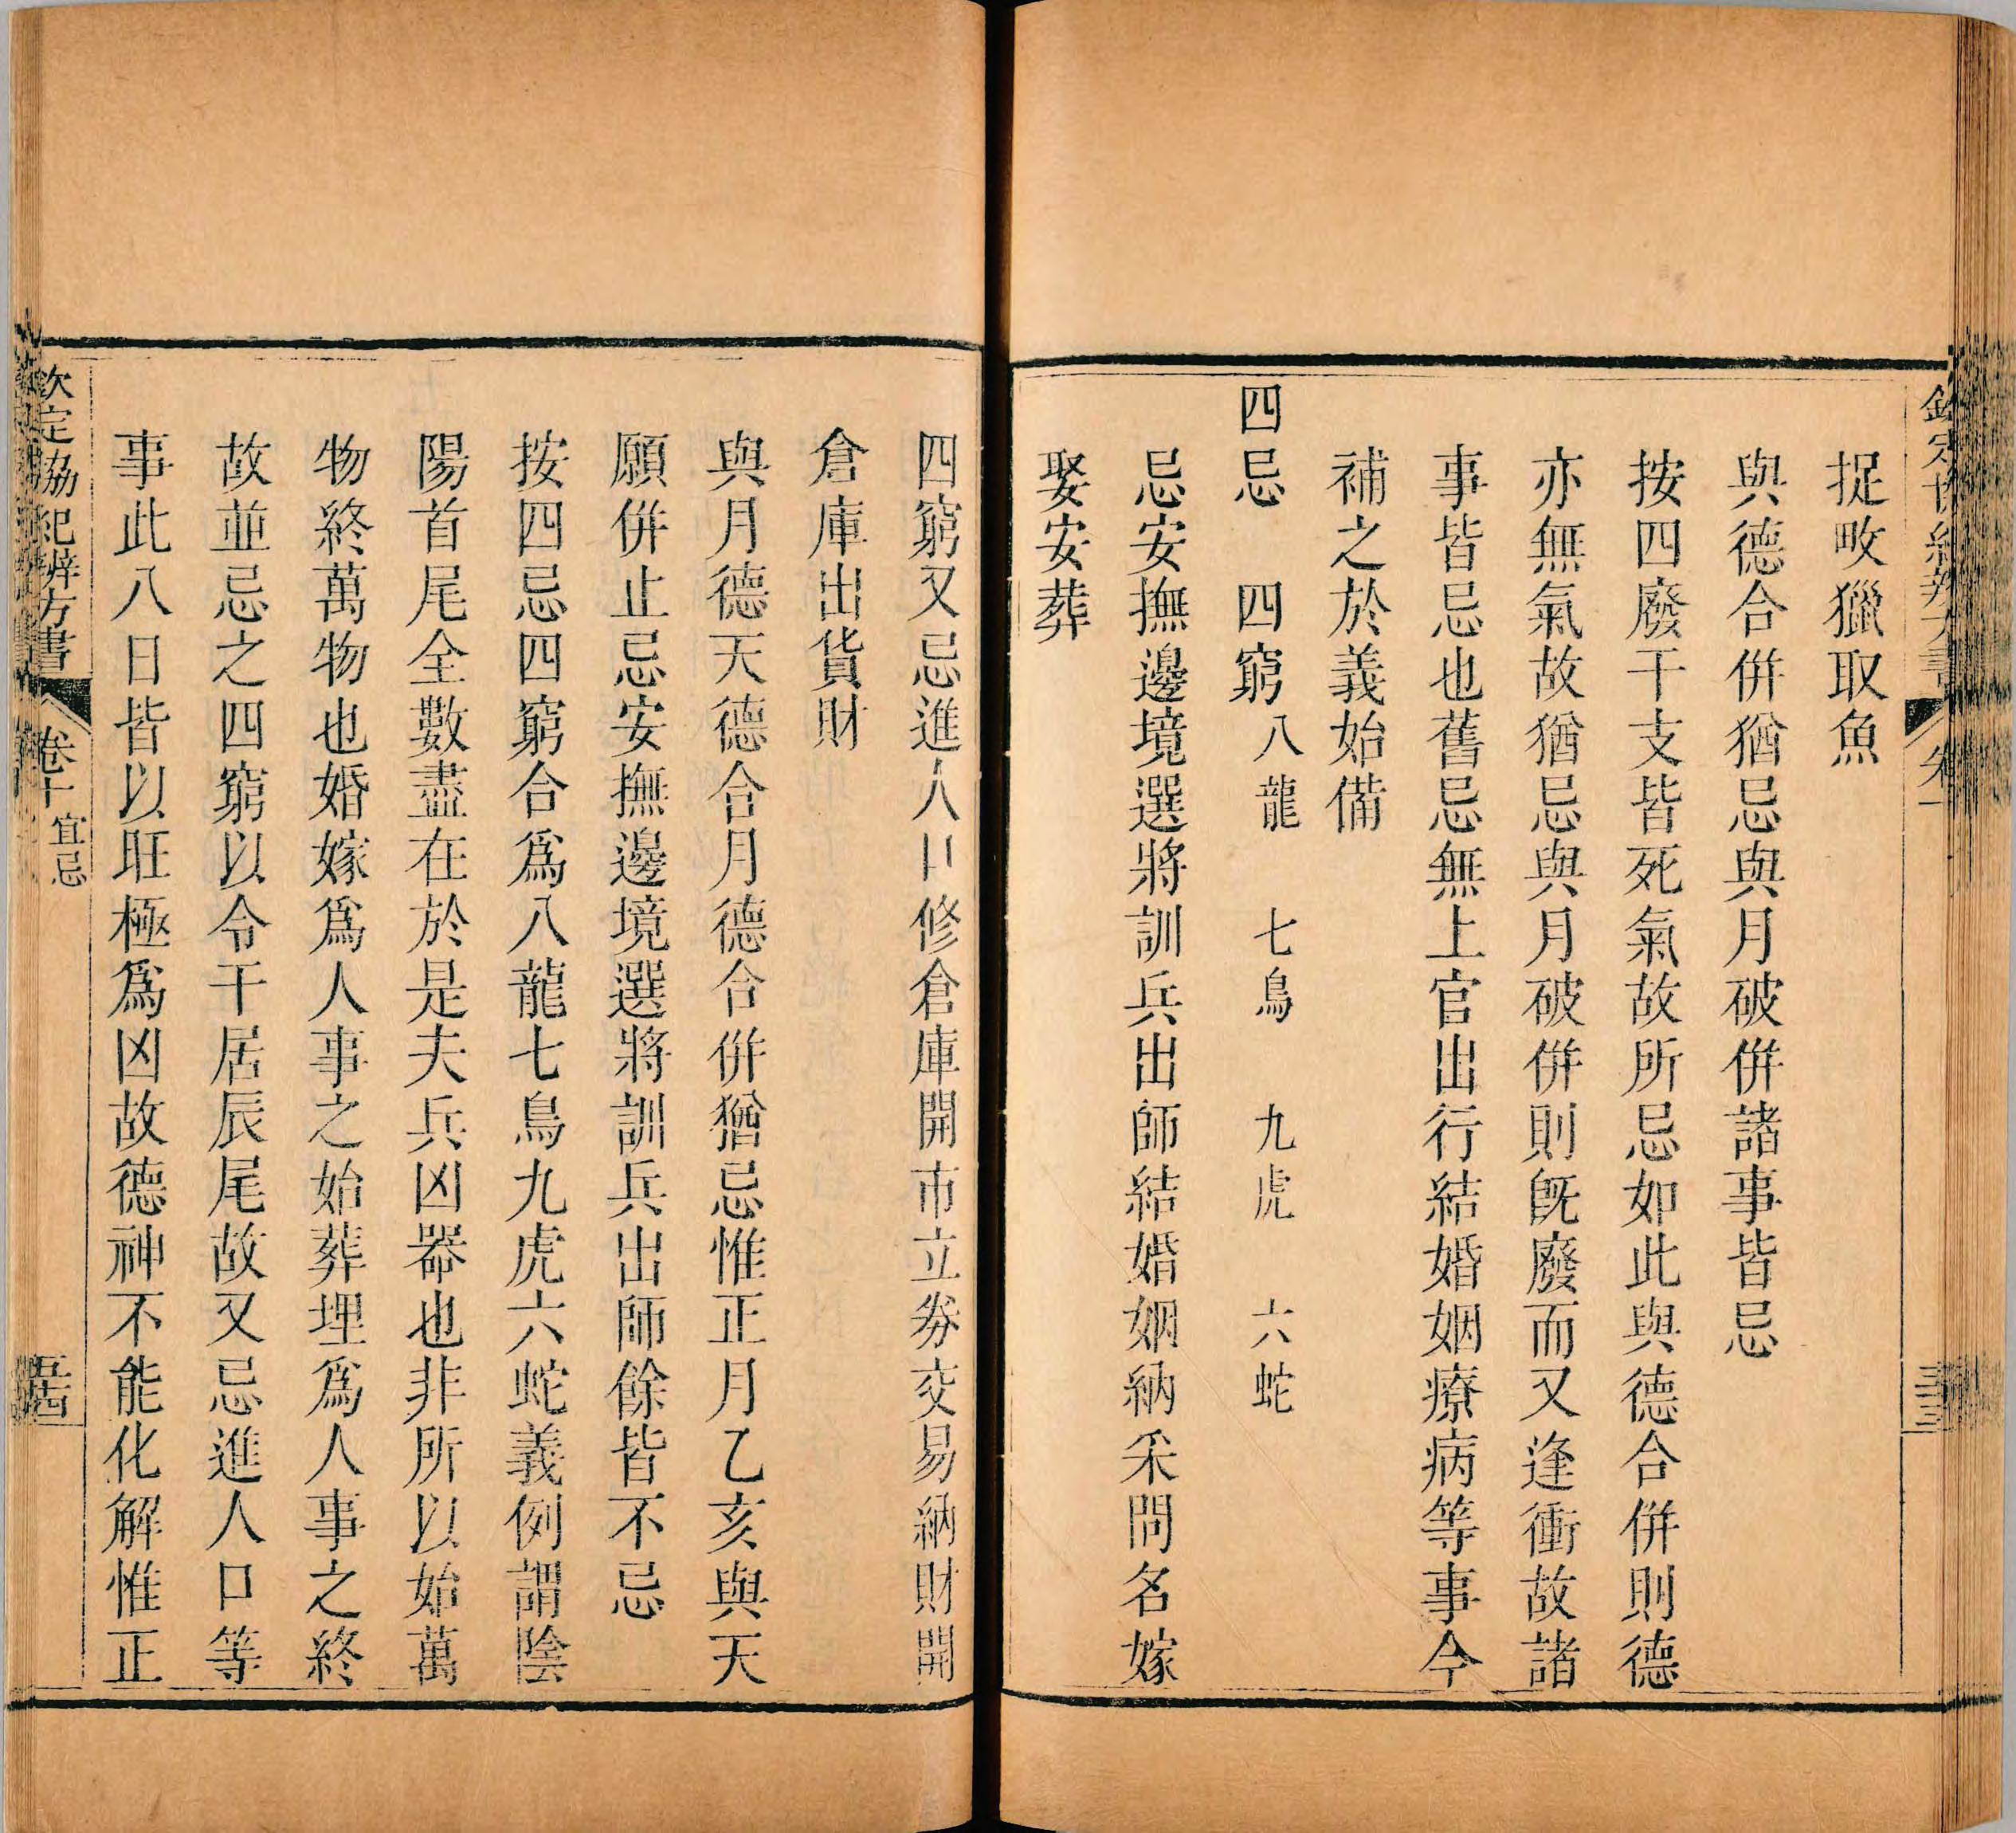 捉畋獵取魚
與德合併猶忌與月破併諸事皆忌
按四廢干支皆死氣故所忌如此與德合併則德
亦無氣故猶忌與月破併則旣廢而又逢衝故諸
事皆忌也舊忌無上官出行結婚姻療病等事今
補之於義始備
四忌 四窮 八龍 七鳥 九虎 六蛇
忌安撫邊境選將訓兵出師結婚姻納采問名嫁
娶安葬
四窮又忌進人口修倉庫開市立券交易納財開
倉庫出貨財
與月德天德合月德合併猶忌惟正月乙亥與天
願併止忌安撫邊境選將訓兵出師餘皆不忌
按四忌四窮合爲八龍七鳥九虎六蛇義例謂陰
陽首尾全數盡在於是夫兵凶器也非所以始萬
物終萬物也婚嫁爲人事之始葬埋爲人事之終
故並忌之四窮以令干居辰尾故又忌進人口等
事此八日皆以旺極爲凶故德神不能化解惟正
欽定協紀辨方書 卷十 宜忌